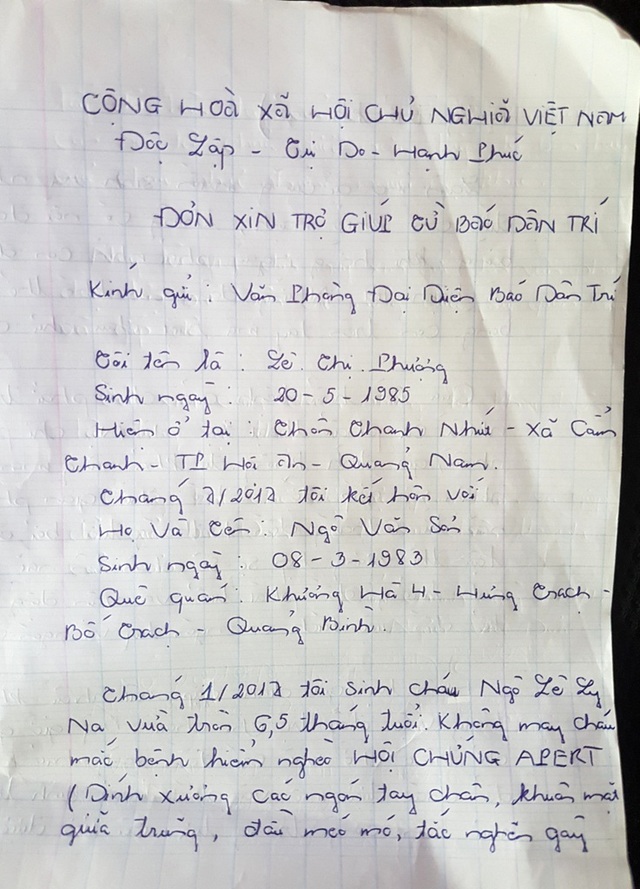 CỘNG HOÀ XÃ HỘI CHỦ NGHĨA VIỆT NAM
Độc Lập - Tự Do - Hạnh Phúc
ĐƠN XIN TRỢ GIÚP CỦ BÁO DÂN TRÍ
Kính gửi : Văn Phòng Đại Diện Báo Dân Trí
Tôi tên là : Lê Thị Phượng
Sinh ngày : 20 - 5 - 1985
Hiện ở tại : Thôn Thanh Nhứt - Xã Cẩm
Thanh - TP Hội An - Quảng Nam.
Tháng 2/2012 tôi kết hôn với
Họ và tên : Ngô Văn Sơn
Sinh ngày : 08 - 3 - 1983
Quê quán : Khương Hà 4 - Hưng Trạch -
Bố Trạch - Quảng Bình.
Tháng 1/2017 tôi sinh cháu Ngô Lê Ly
Na vừa tròn 6,5 tháng tuổi. Không may cháu
mắc bệnh hiểm nghèo HỘI CHỨNG APERT
(Dính xương các ngón tay chân, khuôn mặt
giữa trũng, đầu méo mó, tắc nghẽn gây